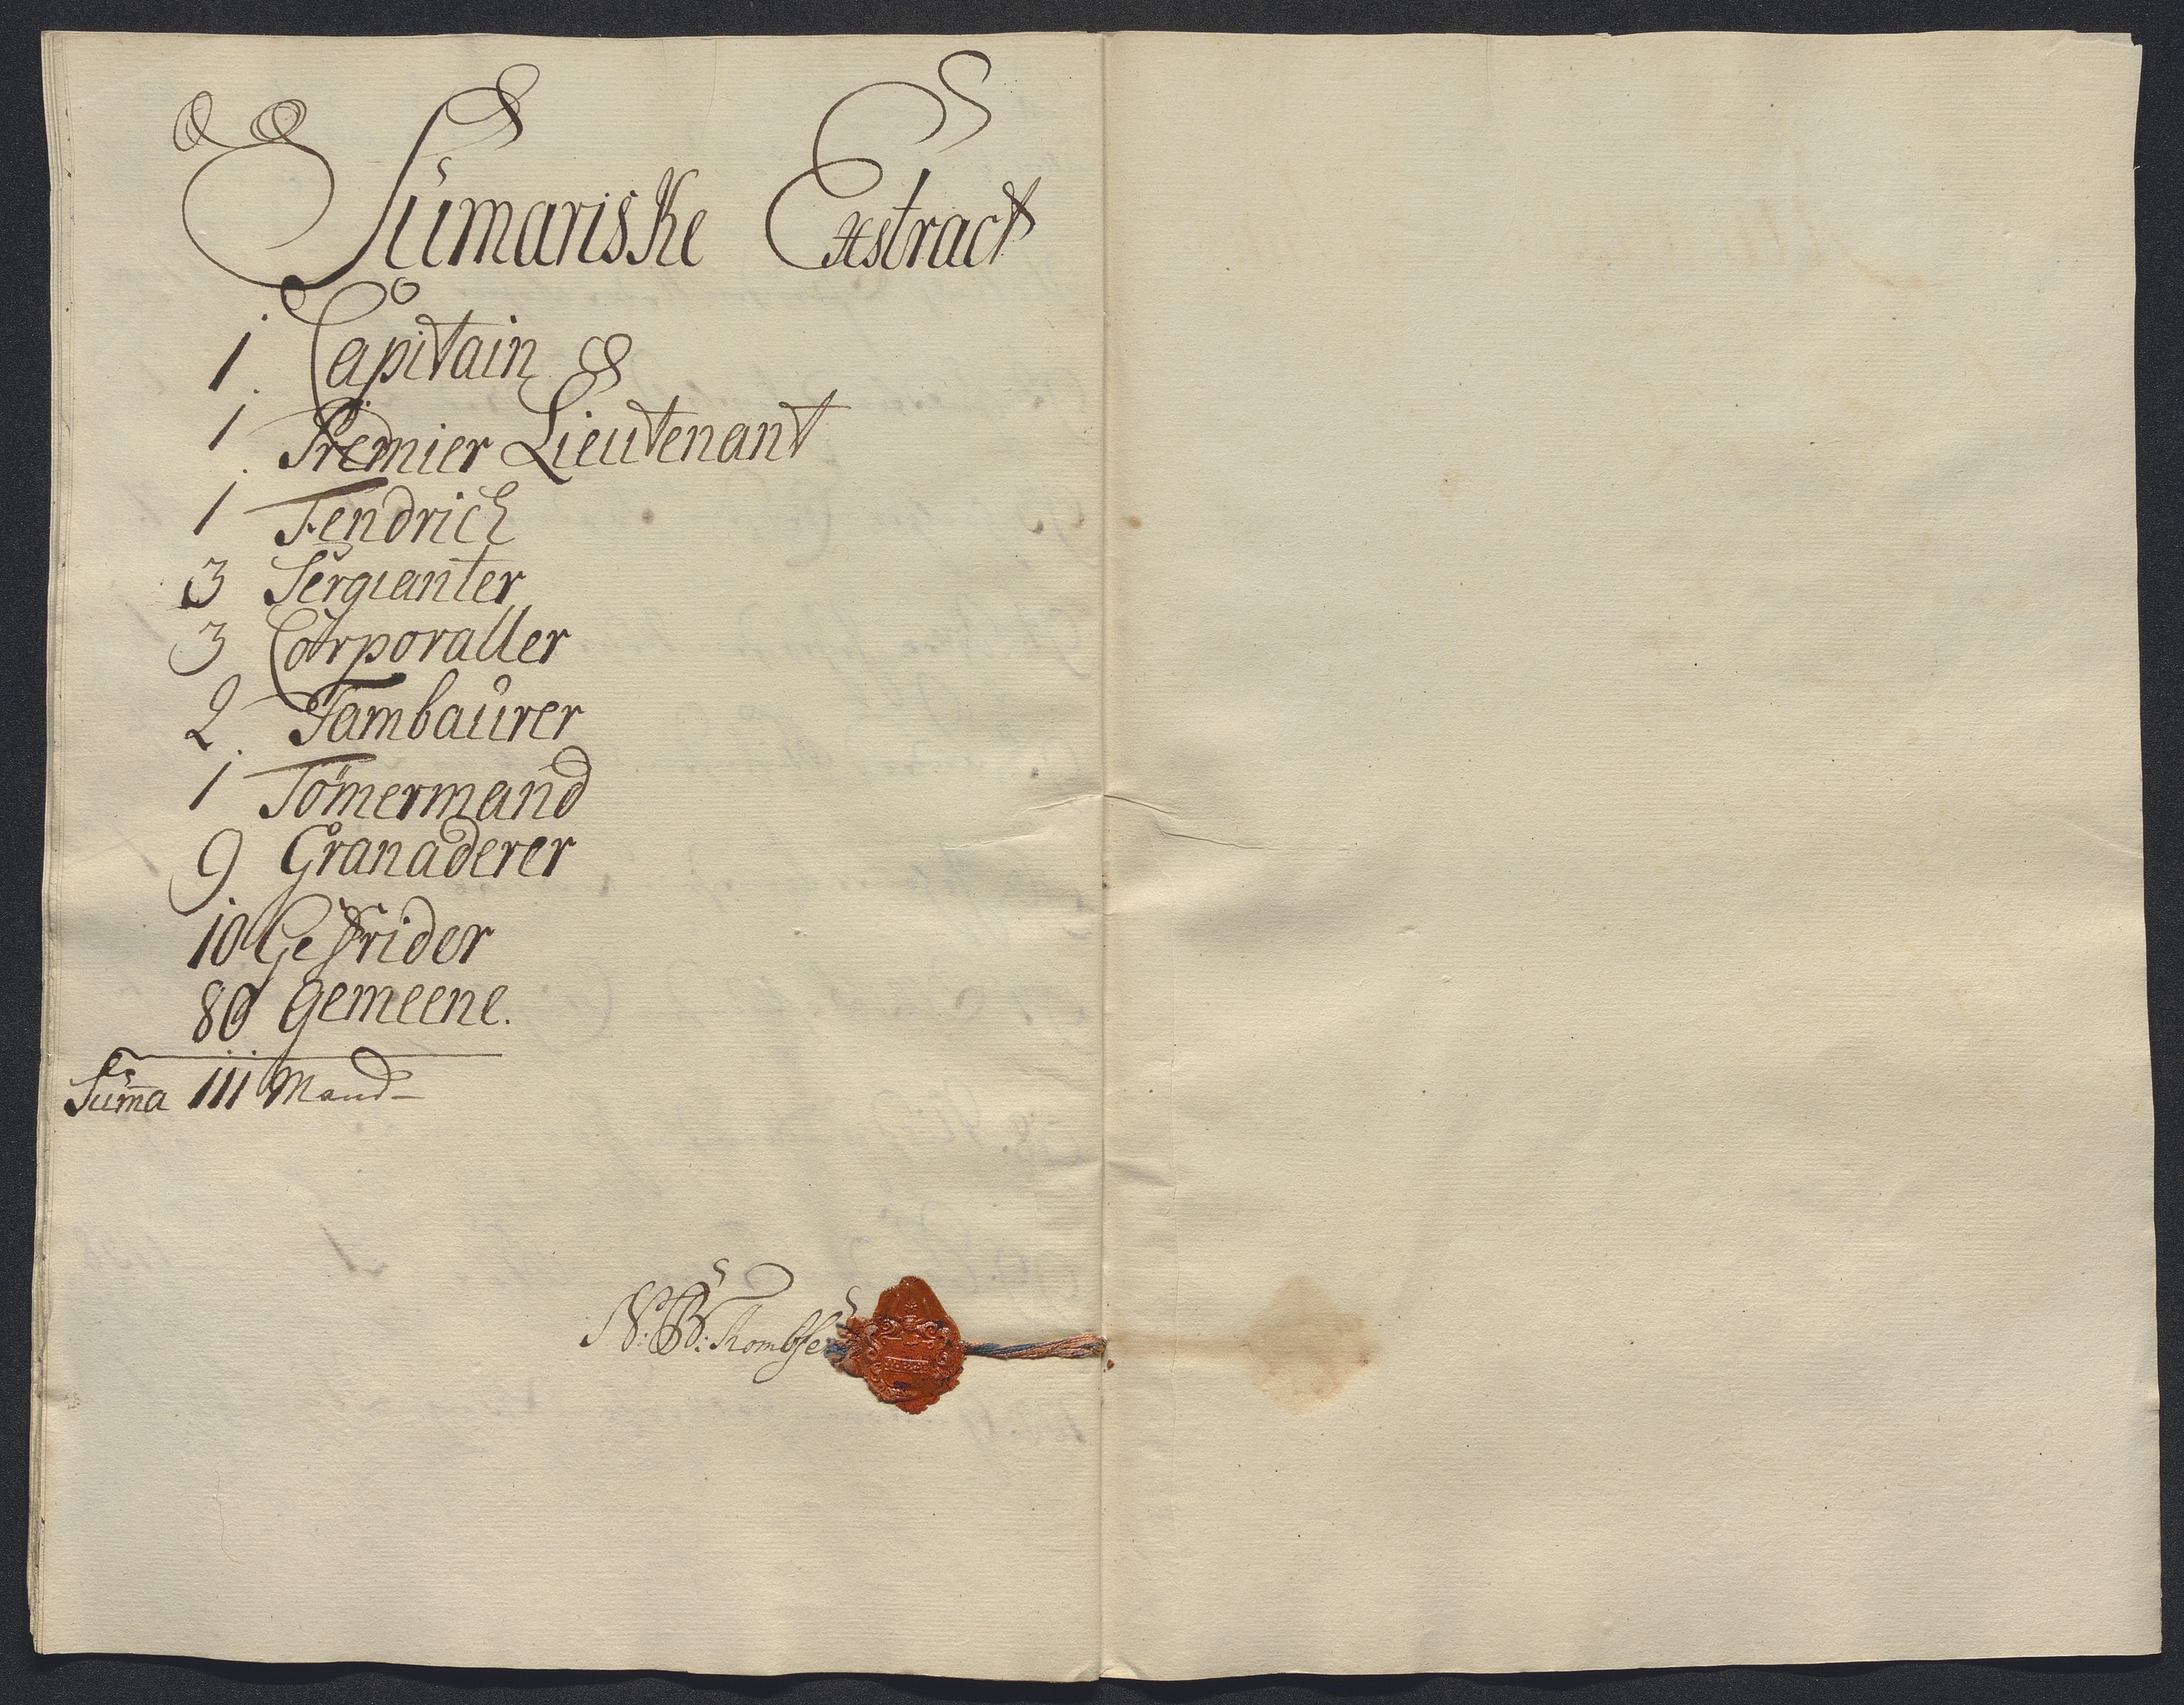 Sumariske Exstract
1. Capitain
1. Premier Lieutenant
1 Fendrich
3 Sergianter
3 Corporaller
2. Tambaurer
1 Tömermand
9 Granaderer
10 Gefrider
80 gemeene.
Suma 111 Mand
N: B: